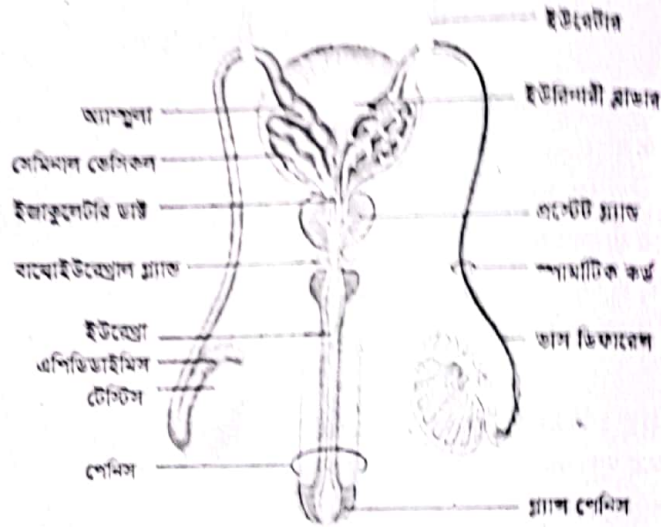 ইউরেটার
ইউরিনারী ব্লাডার
অ্যাম্পুলা
সেমিনাল ভেসিকল
ইজাকুলেটরি ডাক্ট
প্রস্টেট গ্ল্যান্ড
বাল্বোইউরেথ্রাল গ্ল্যান্ড
স্পার্মাটিক কর্ড
ইউরেথ্রা
ভাস ডিফারেন্স
এপিডিডাইমিস
টেস্টিস
পেনিস
গ্ল্যান্স পেনিস